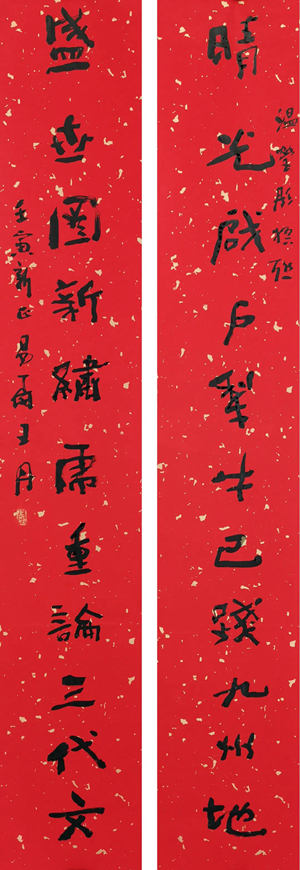 溫瑩彤撰聯
晴光啟戶犁牛已踐九州地
盛世圖新繡虎重論三代文
壬寅新正王丹